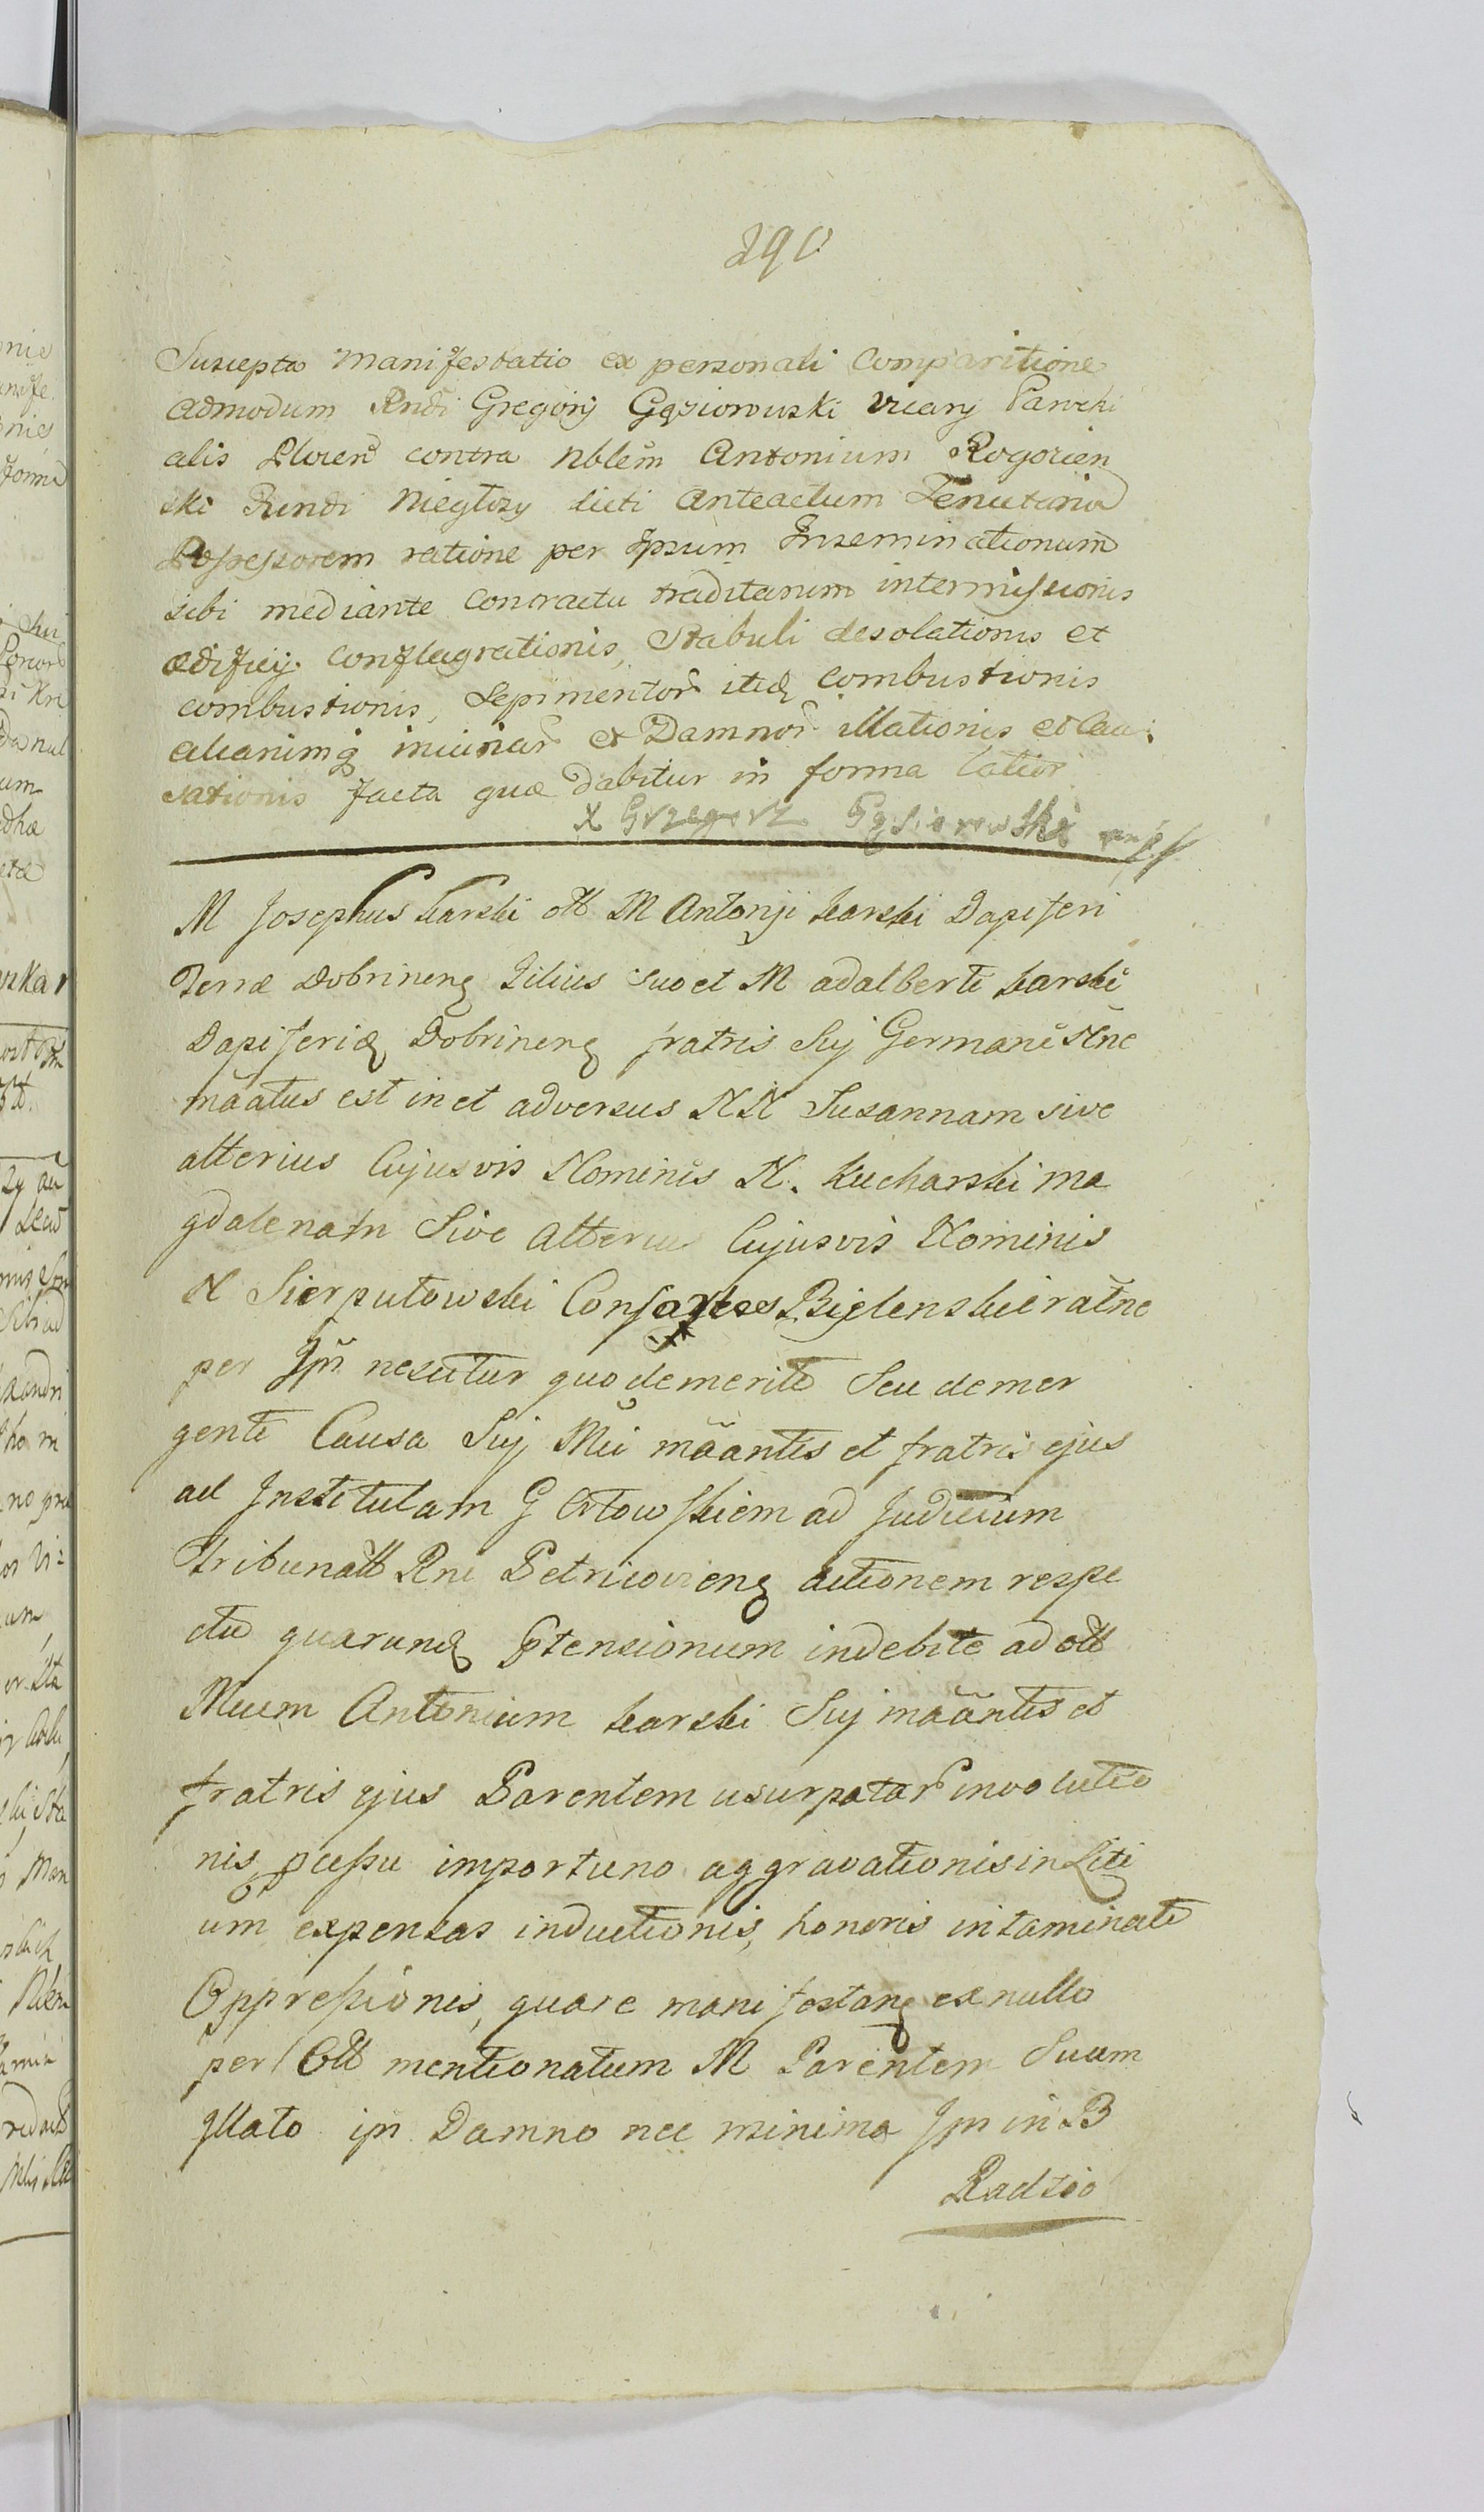 290
Suscepta Manifestatio ex personali Comparitione
admodum Rndi Gregorij Gąsiorowski Vicarij Parochi
alis Plocen contra Nblem Antonium Rogozien
ski Fundi Niegłosy dicti Anteactum Tenutariu
Possessorem ratione per Ipsum Inseminationum
sibi mediante Contractu traditarum intermissionis
ædificij Conflagrationis, Stabuli desolationis et
combustionis, Sepimentor itidq combustionis
aliarumq iniuriar et Damnor illationis et Cau
sationis facta quæ dabitur in forma latior
X Grzegorz Gąsiorowski mpp
M Josephus Karski olt M Antonji Karski Dapiferi
Terræ Dobrinens Filius suo et M adalberti Karski
Dapiferidæ Dobrinens fratris Sui Germani Nne
mãatus est in et adversus NN Susannam sive
alterius Cujusvis Nominis N. Kucharski Ma
gdalenam Sive Alterius Cujusvis Nominis
N Sierputowski Consortes Bielenskie ratne
per Ipn nescitur quo demerito Seu demer
genti Causa Sui Mci mãantis et fratris ejus
ad Institutam G Orłowskiem ad Judicium
Tribunalt Rni Petricoviens actionem respe
ctu quarund Ptensionum indebite ad olt
Mcum Antonium Karski Sui mãantis et
fratris ejus Parentem usurpatar involutio
nis pcessu importuno aggravationis in Liti
um expensas inductionis, honoris intaminati
Oppressionis, quare manifestans ex nullo
per Olt mentionatum M Parentem Suum
Illato ipn Damno nec minima Ipn in B
Radzio